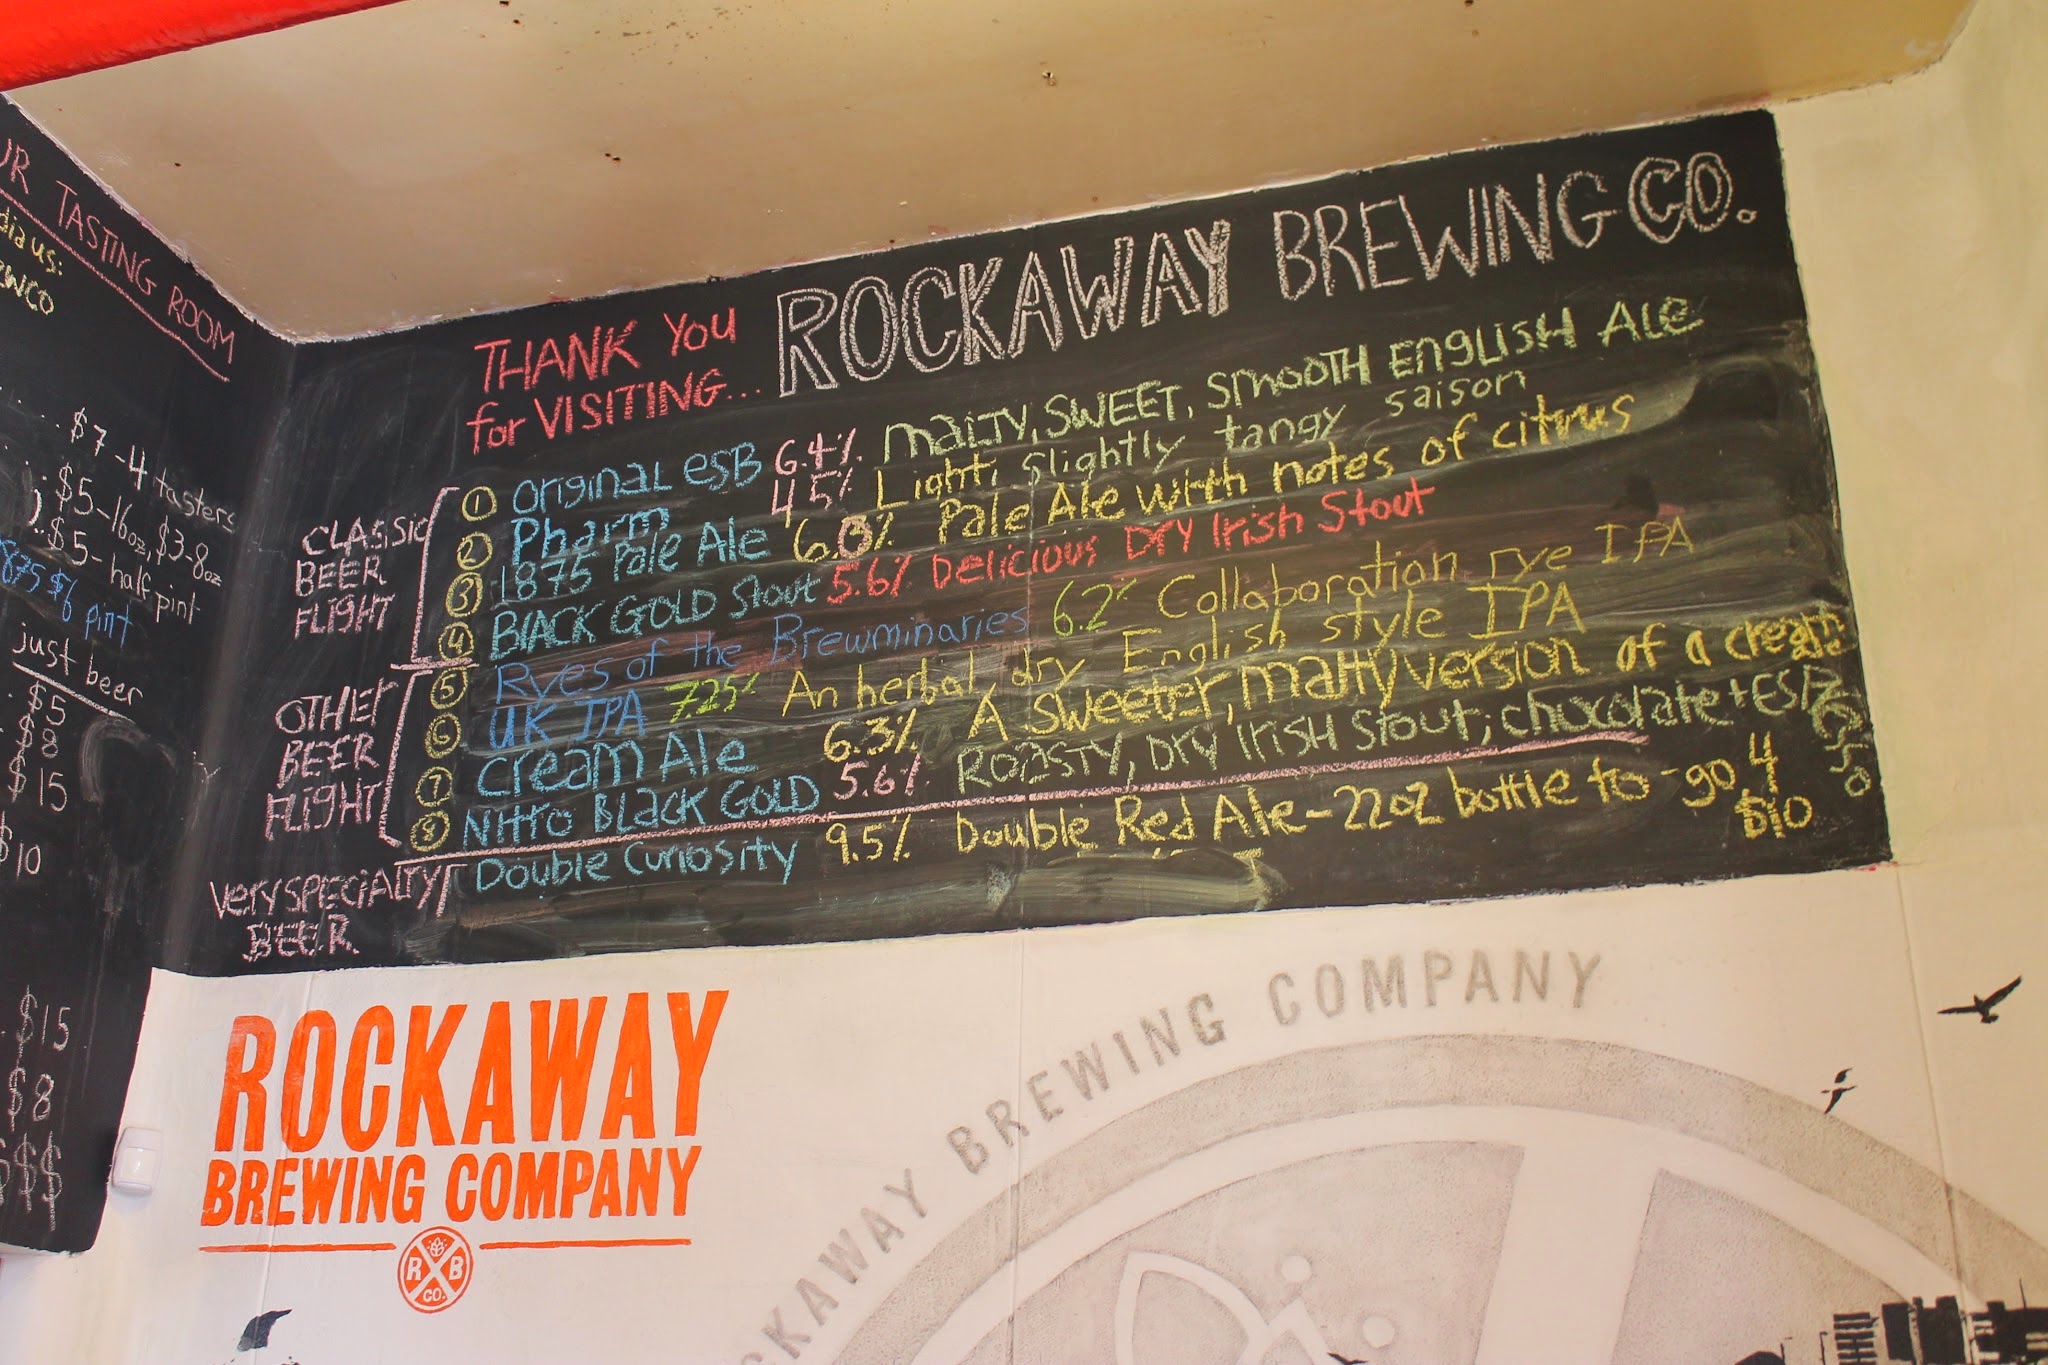 TASTING ROOM
$7-4 tasters
$5-16oz, $3-8oz
$5- half pint
$6 pint
just beer
$5
$8
$15
$10
$15
$8
$$$
THANK YOU
for VISITING...
ROCKAWAY BREWING CO.
CLASSIC
BEER
FLIGHT
① Original ESB 6.4% MALTY, SWEET, SMOOTH ENGLISH ALE
② Pharm 4.5% Light, slightly tangy saison
③ 1875 Pale Ale 6.0% Pale Ale with notes of citrus
④ BLACK GOLD Stout 5.6% Delicious DRY Irish Stout
OTHER
BEER
FLIGHT
⑤ Ryes of the Brewminaries 6.2% Collaboration rye IPA
⑥ UK IPA 7.25% An herbal dry English style IPA
⑦ Cream Ale 6.3% A sweeter, malty version of a cream
⑧ Nitro Black GOLD 5.6% ROASTY, DRY IRISH STOUT, chocolate +
VERY SPECIALTY
BEER
Double Curiosity 9.5% Double Red Ale-22oz bottle to-go 4
$10
ROCKAWAY
BREWING COMPANY
R B
CO.
BREWING COMPANY